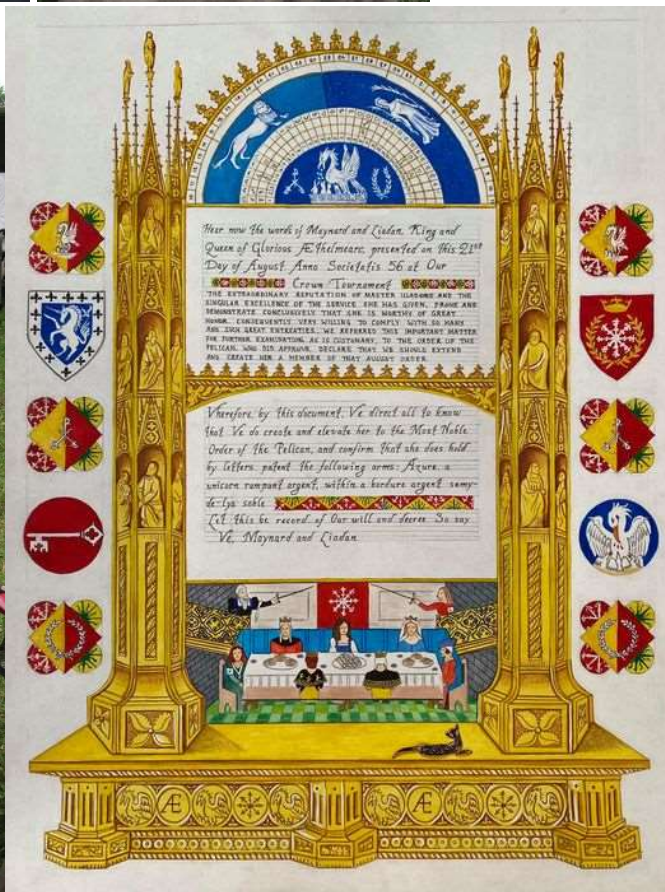 Hear now the words of Maynard and Liadan, King and
Queen of Glorious Æthelmearc, presented on this 21st
Day of August Anno Societatis 56 at Our
Crown Tournament
THE EXTRAORDINARY REPUTATION OF MASTER AND THE
SINGULAR EXCELLENCE OF THE SERVICE SHE HAS GIVEN, PROVE AND
DEMONSTRATE CONCLUSIVELY THAT SHE IS WORTHY OF GREAT
HONOR. CONSEQUENTLY VERY WILLING TO COMPLY WITH SO MANY
AND SUCH GREAT ENTREATIES, WE REFERRED THIS IMPORTANT MATTER
FOR FURTHER EXAMINATION, AS IS CUSTOMARY, TO THE ORDER OF THE
PELICAN, WHO DID APPROVE, DECLARE THAT WE SHOULD EXTEND
AND CREATE HER A MEMBER OF THAT AUGUST ORDER
Wherefore, by this document, We direct all to know
that We do create and elevate her to the Most Noble
Order of the Pelican, and confirm that she does hold
by letters patent the following arms: Azure, a
unicorn rampant argent, within a bordure argent semy-
de-lys sable
Let this be record of Our will and decree So say
We, Maynard and Liadan
Æ
Æ